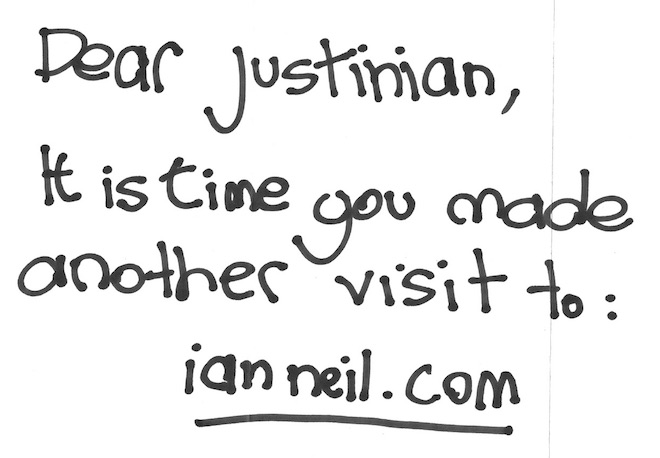 Dear Justinian,
It is time you made
another visit to:
ianneil.com